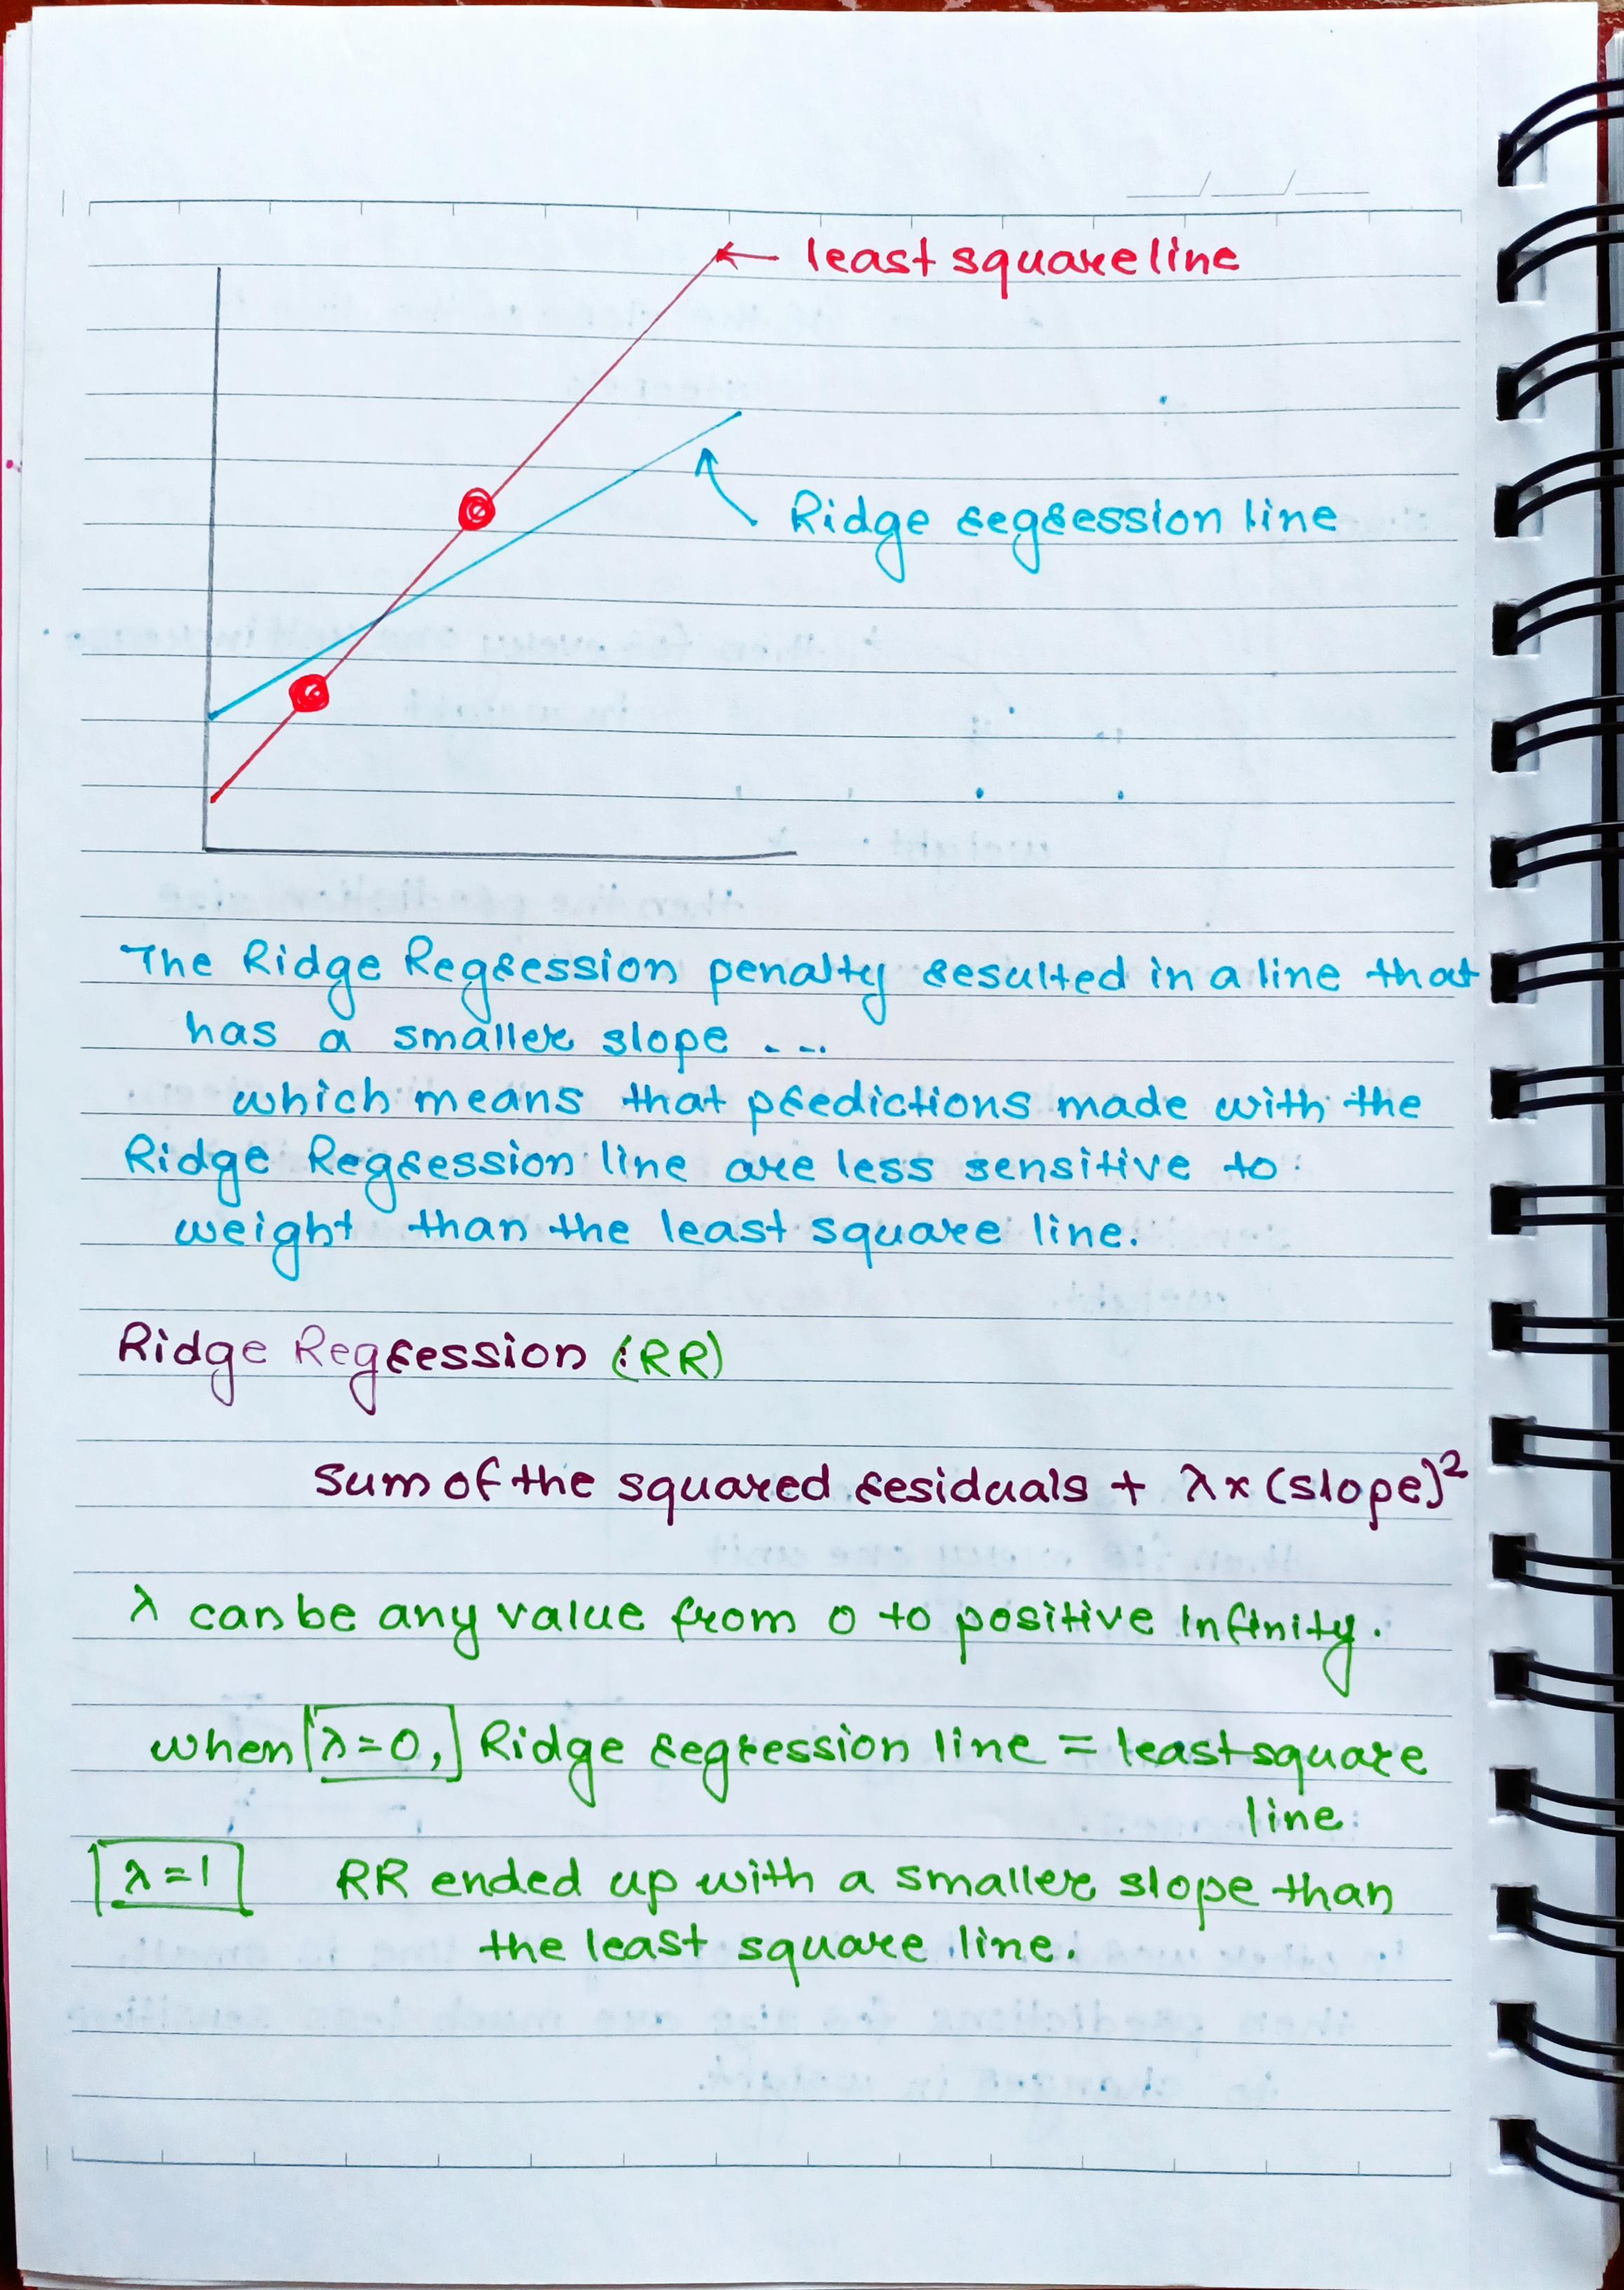 least square line
Ridge regression line
The Ridge Regression penalty resulted in a line that
has a smaller slope ...
which means that predictions made with the
Ridge Regression line are less sensitive to
weight than the least square line.
Ridge Regression (RR)
Sum of the squared residuals + λ × (slope)²
λ can be any value from 0 to positive infinity.
when λ=0, Ridge regression line = least square
line
λ=1 RR ended up with a smaller slope than
the least square line.